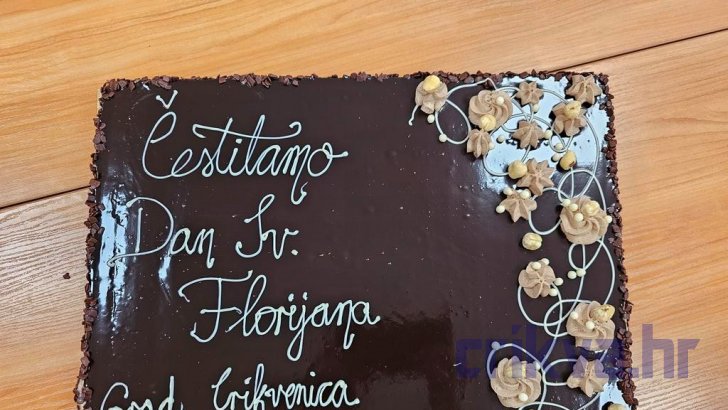 Čestitamo
Dan Sv.
Florijana
Grad Crikvenica
crikva.hr